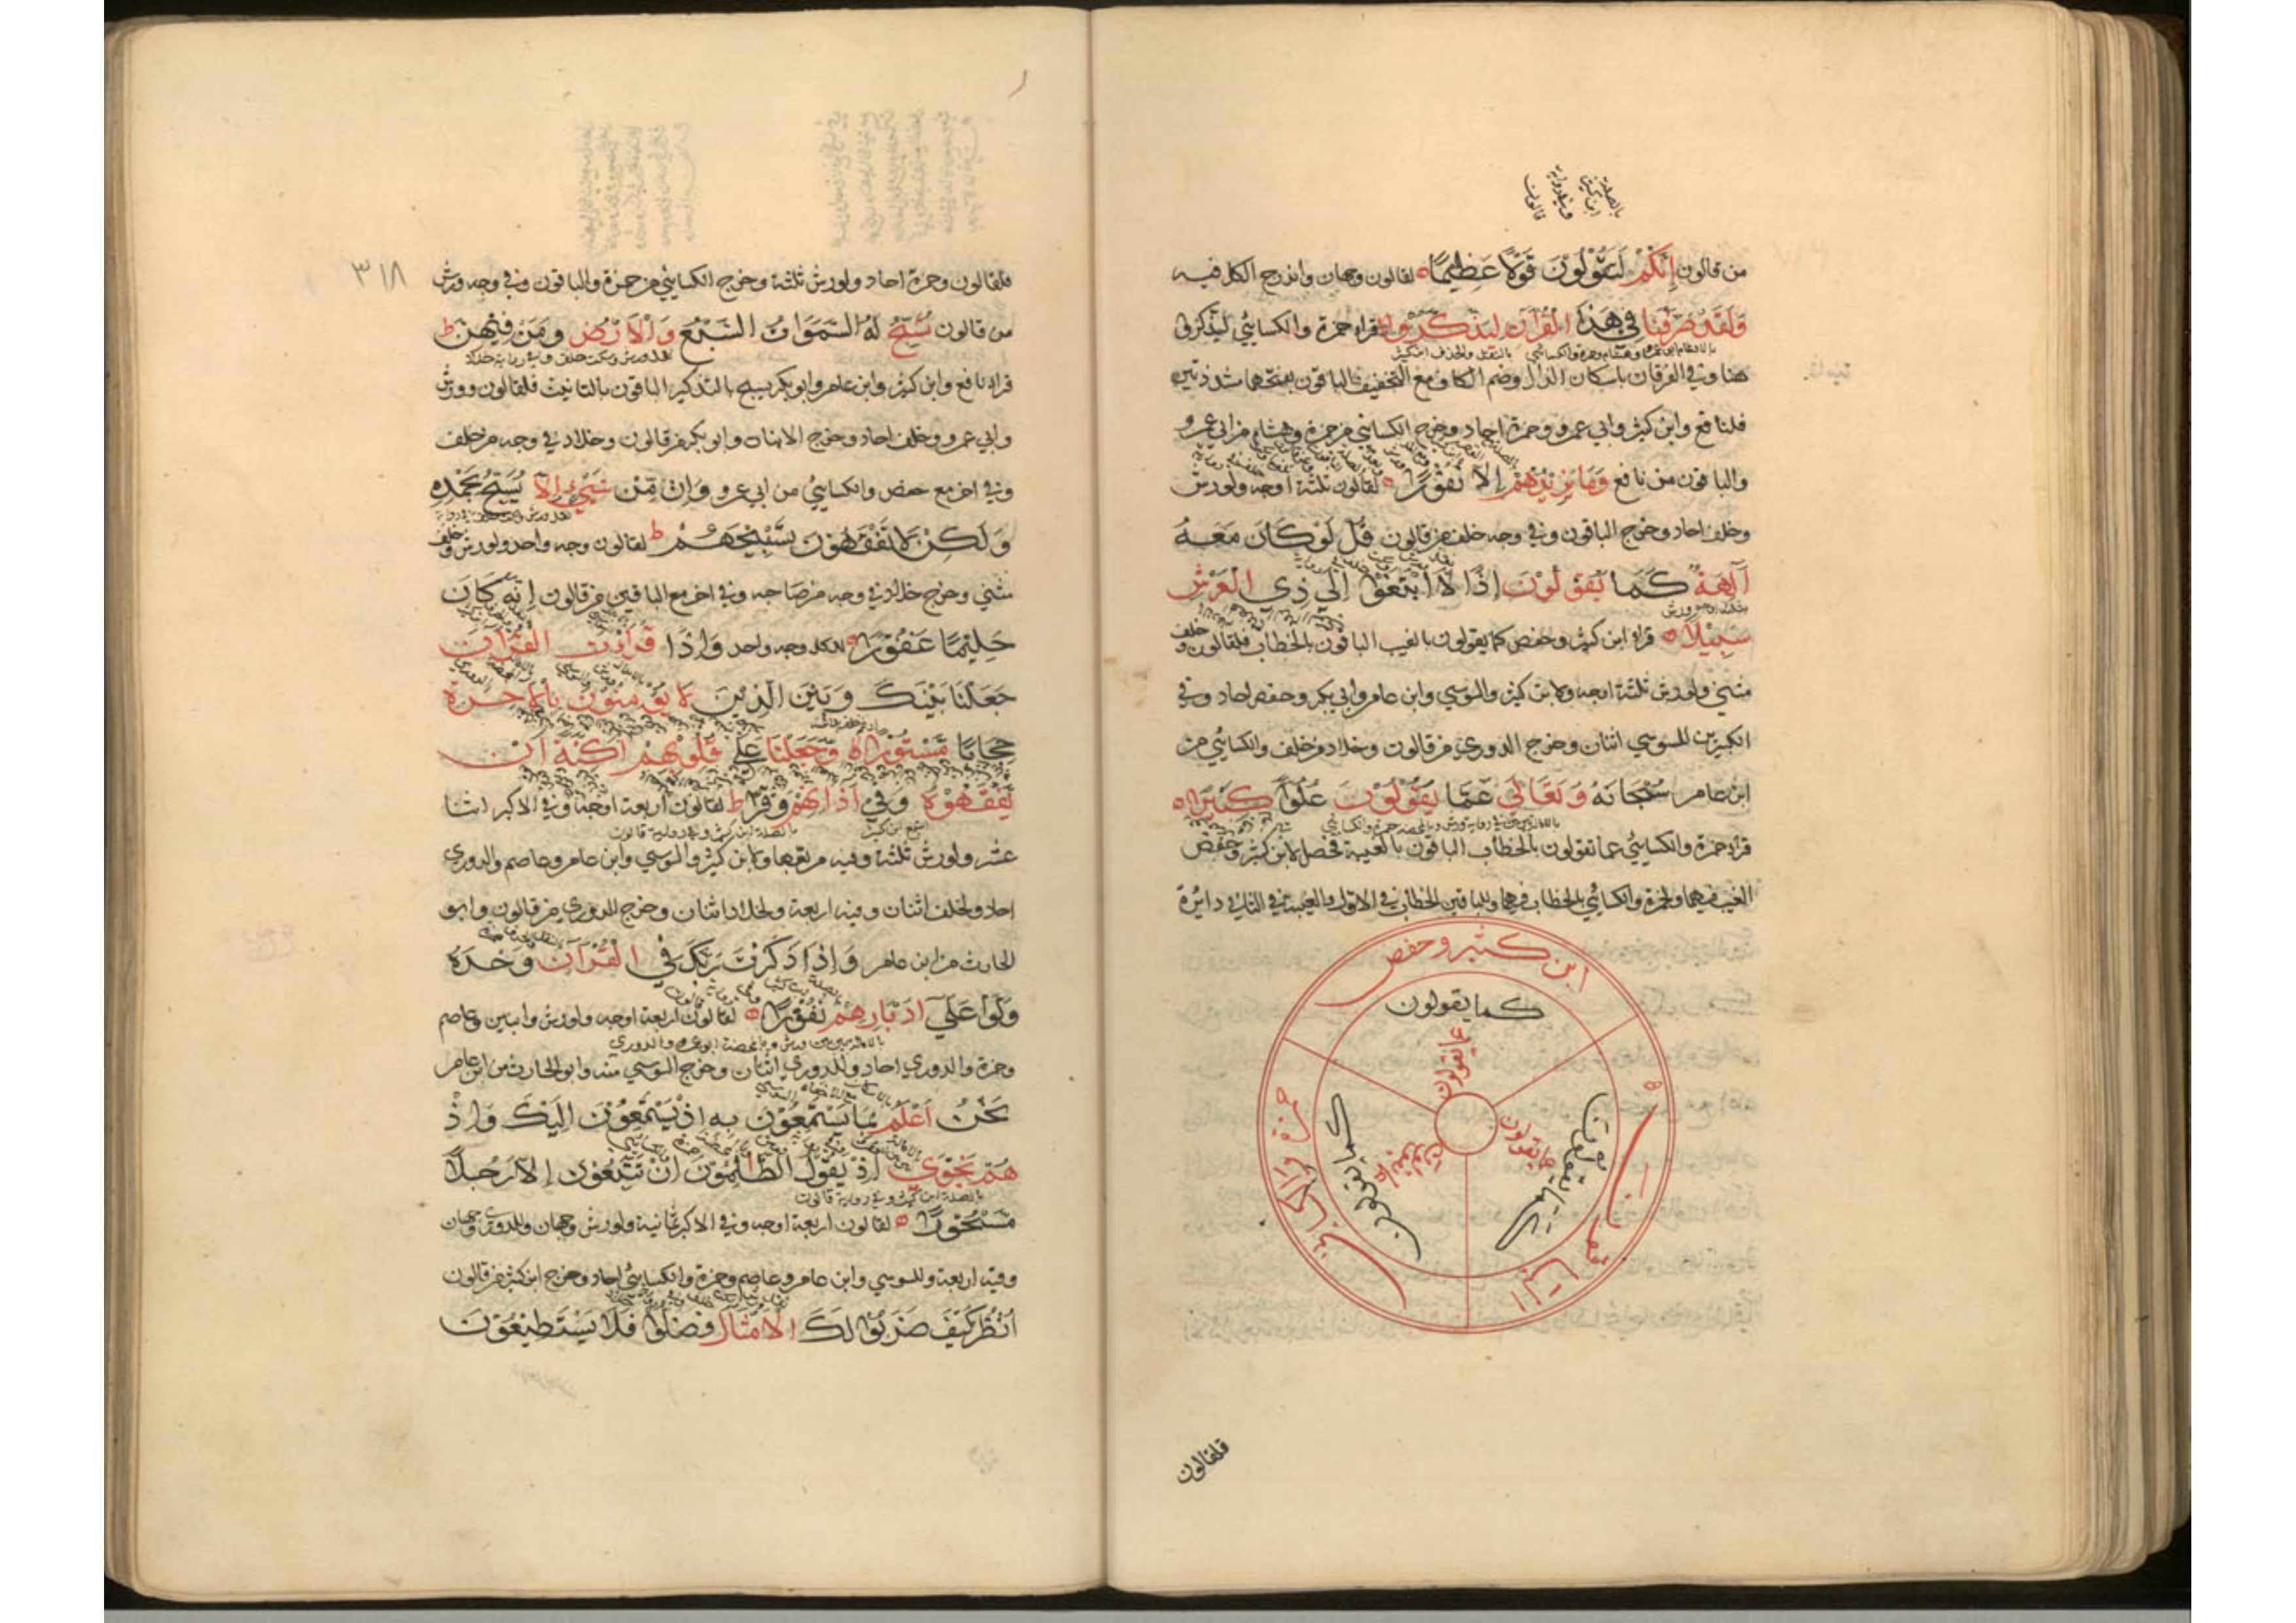 من قالون إِنَّكُمْ لَتَقُوْلُوْنَ قَوْلًا عَظِيْمًا لقالون وجهان واندرج الكل فيه
وَلَقَدْ صَرَّفْنَا فِي هَذَا الْقُرْآنِ لِيَذَّكَّرُوا قرأ حمزة والكسائي ليذكروا
بالادغام ابو عمرو وهشام وحمزة والكسائي بالنقل والحذف ابن كثير
هنا وفي الفرقان باسكان الذال وضم الكاف مع التخفيف والباقون بفتحهما مشددتين
فلنافع وابن كثير وابي عمرو وحمزة احاد وخرج الكسائي من حمزة وهشام من ابي عمرو
والباقون من نافع وَمَا يَزِيْدُهُمْ إِلَّا نُفُوْرًا لقالون ثلثة اوجه ولورش
وخلف احاد وخرج الباقون وفي وجه خلف من قالون قُلْ لَوْ كَانَ مَعَهُ
آلِهَةٌ كَمَا يَقُوْلُوْنَ إِذًا لَابْتَغَوْا إِلَى ذِي الْعَرْشِ
سَبِيْلًا قرأ ابن كثير وحفص كما يقولون بالغيب الباقون بالخطاب فلقالون وخلف
مثنى ولورش ثلثة اوجه ولابن كثير والسوسي وابن عامر وابي بكر وحفص احاد وفي
الكبير من للسوسي اثنان وخرج الدوري من قالون وخلاد من خلف والكسائي من
ابن عامر سُبْحَانَهُ وَتَعَالَى عَمَّا يَقُوْلُوْنَ عُلُوًّا كَبِيْرًا
قرأ حمزة والكسائي عما تقولون بالخطاب الباقون بالغيبة فحصل لابن كثير وحفص
الغيب فيهما ولحمزة والكسائي بالخطاب فيهما وللباقين الخطاب في الاول والغيبة في الثاني دائرة
ابن كثير وحفص
كما يقولون
عما يقولون
حمزة والكسائي
كما تقولون
عما تقولون
الباقون
كما تقولون
عما يقولون
فلقالون
٣١٨
فلقالون وحمزة احاد ولورش ثلثة وخرج الكسائي من حمزة والباقون وفي وجه ورش
من قالون تُسَبِّحُ لَهُ السَّمَوَاتُ السَّبْعُ وَالْأَرْضُ وَمَنْ فِيْهِنَّ
قرأ نافع وابن كثير وابن عامر وابو بكر يسبح بالتذكير الباقون بالتانيث فلقالون وورش
وابي عمرو وخلف احاد وخرج الابنان وابو بكر من قالون وخلاد في وجه من خلف
وفي اخر مع حفص والكسائي من ابي عمرو وَإِنْ مِّنْ شَيْءٍ إِلَّا يُسَبِّحُ بِحَمْدِهِ
وَلَكِنْ لَا تَفْقَهُوْنَ تَسْبِيْحَهُمْ لقالون وجه واحد ولورش وخلف
مثنى وخرج خلاد في وجه من صاحبه وفي اخر مع الباقين من قالون إِنَّهُ كَانَ
حَلِيْمًا غَفُوْرًا للكل وجه واحد وَإِذَا قَرَأْتَ الْقُرْآنَ
جَعَلْنَا بَيْنَكَ وَبَيْنَ الَّذِيْنَ لَا يُؤْمِنُوْنَ بِالْآخِرَةِ
حِجَابًا مَّسْتُوْرًا وَجَعَلْنَا عَلَى قُلُوْبِهِمْ أَكِنَّةً أَنْ
يَّفْقَهُوْهُ وَفِي آذَانِهِمْ وَقْرًا لقالون اربعة اوجه وفي الاكبر اثنا
بالصلة ابن كثير وفي رواية قالون
عشر ولورش ثلثة وفيه مربعها ولابن كثير والسوسي وابن عامر وعاصم والدوري
احاد ولخلف اثنان وفيه اربعة ولخلاد اثنان وخرج للدوري من قالون وابو
الحارث من ابن عامر وَإِذَا ذَكَرْتَ رَبَّكَ فِي الْقُرْآنِ وَحْدَهُ
وَلَّوْا عَلَى أَدْبَارِهِمْ نُفُوْرًا لقالون اربعة اوجه ولورش وابنين وعاصم
وحمزة والدوري احاد وللدوري اثنان وخرج السوسي منه وابو الحارث من ابن عامر
نَحْنُ أَعْلَمُ بِمَا يَسْتَمِعُوْنَ بِهِ إِذْ يَسْتَمِعُوْنَ إِلَيْكَ وَإِذْ
هُمْ نَجْوَى إِذْ يَقُوْلُ الظَّالِمُوْنَ إِنْ تَتَّبِعُوْنَ إِلَّا رَجُلًا
بالصلة ابن كثير وفي رواية قالون
مَّسْحُوْرًا لقالون اربعة اوجه وفي الاكبر ثمانية ولورش وجهان وللدوري وجهان
وفيه اربعة وللسوسي وابن عامر وعاصم وحمزة والكسائي احاد وخرج ابن كثير من قالون
اُنْظُرْ كَيْفَ ضَرَبُوْا لَكَ الْأَمْثَالَ فَضَلُّوْا فَلَا يَسْتَطِيْعُوْنَ